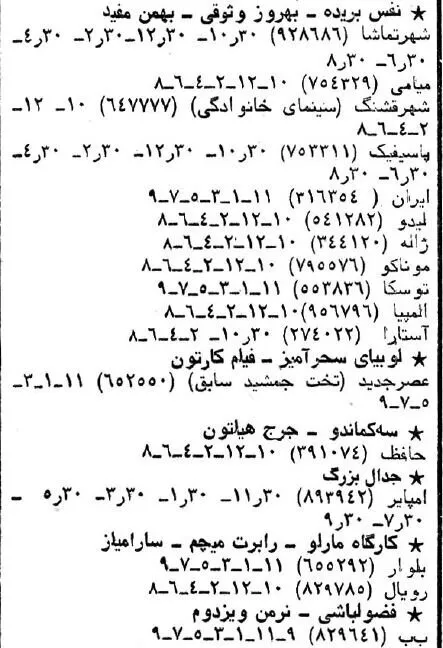 ★ نفس بریده ـ بهروز وثوقی ـ بهمن مفید
شهرتماشا (۹۲۸۶۸۶) ۳۰ر۱۰ـ ۳۰ر۱۲ـ ۳۰ر۲ـ ۳۰ر۴ـ
۳۰ر۶ـ ۳۰ر۸
میامی (۷۵۴۳۲۹) ۱۰ـ۱۲ـ۲ـ۴ـ۶ـ۸
شهرقشنگ (سینمای خانوادگی) (۶۴۷۷۷۷) ۱۰ـ ۱۲ـ
۲ـ۴ـ۶ـ۸
پاسیفیک (۷۵۳۳۱۱) ۳۰ر۱۰ـ ۳۰ر۱۲ـ ۳۰ر۲ـ ۳۰ر۴ـ
۳۰ر۶ـ ۳۰ر۸
ایران ( ۳۱۶۳۵۴) ۱۱ـ۱ـ۳ـ۵ـ۷ـ۹
لیدو (۵۴۱۲۸۲) ۱۰ـ۱۲ـ۲ـ۴ـ۶ـ۸
ژاله (۳۴۴۱۲۰) ۱۰ـ۱۲ـ۲ـ۴ـ۶ـ۸
موناکو (۷۹۵۵۷۶) ۱۰ـ۱۲ـ۲ـ۴ـ۶ـ۸
توسکا (۵۵۳۸۳۶) ۱۱ـ۱ـ۳ـ۵ـ۷ـ۹
المپیا (۹۵۶۷۹۶)۱۰ـ۱۲ـ۲ـ۴ـ۶ـ۸
آستارا (۲۷۴۰۲۲) ۳۰ر۱۰ـ ۲ـ۴ـ۶ـ۸
★ لوبیای سحرآمیز ـ فیلم کارتون
عصرجدید (تخت جمشید سابق) (۶۵۲۵۵۰) ۱۱ـ۱ـ۳ـ
۵ـ۷ـ۹
★ سه‌کماندو ـ جرج هیلتون
حافظ (۳۹۱۰۷۴) ۱۰ـ۱۲ـ۲ـ۴ـ۶ـ۸
★ جدال بزرگ
امپایر (۸۹۳۹۴۲) ۳۰ر۱۱ـ ۳۰ر۱ـ ۳۰ر۳ـ ۳۰ر۵ ـ
۳۰ر۷ـ ۳۰ر۹
★ کارگاه مارلو ـ رابرت میچم ـ سارامیاز
بلوار (۶۵۵۲۹۲) ۱۱ـ۱ـ۳ـ۵ـ۷ـ۹
رویال (۸۲۹۷۸۵) ۱۰ـ۱۲ـ۲ـ۴ـ۶ـ۸
★ فضولباشی ـ نرمن ویزدوم
ب‌ب (۸۲۹۶۴۱) ۹ـ۱۱ـ۱ـ۳ـ۵ـ۷ـ۹